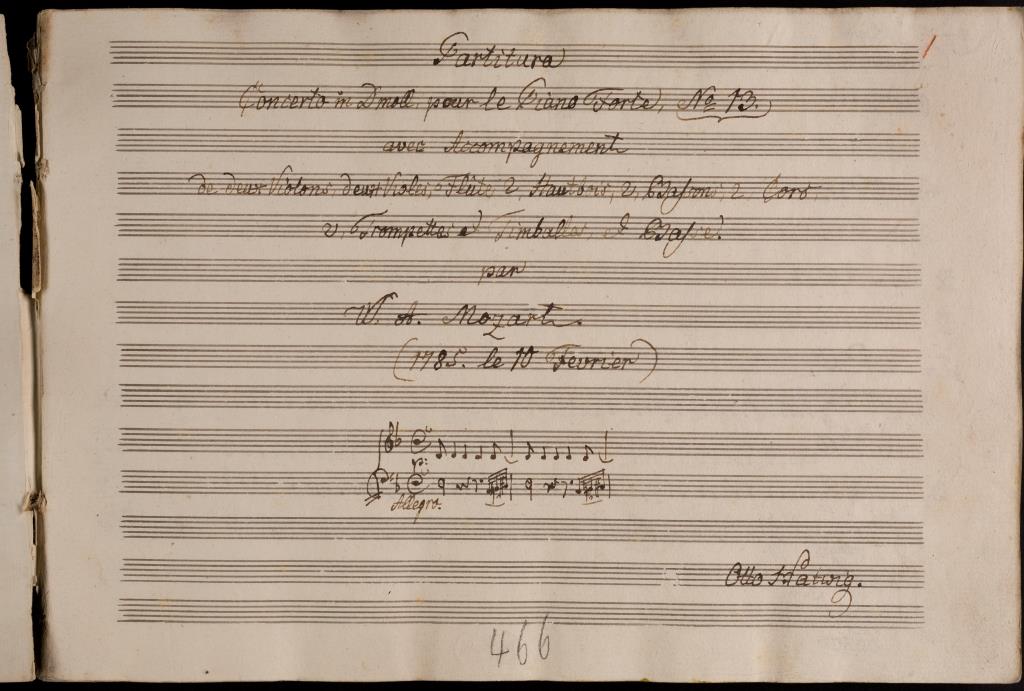 1
Partitura
Concerto in Dmoll, pour le Piano Forte, No 13.
avec Accompagnement
de deux Violons, deux Violes, Flûte 2, Hautbois, 2, Bassons, 2. Cors,
2, Trompettes et Timballes, et Basse.
par
W. A. Mozart.
(1785. le 10 Fevrier)
p:
Allegro.
Otto Hatwig.
466